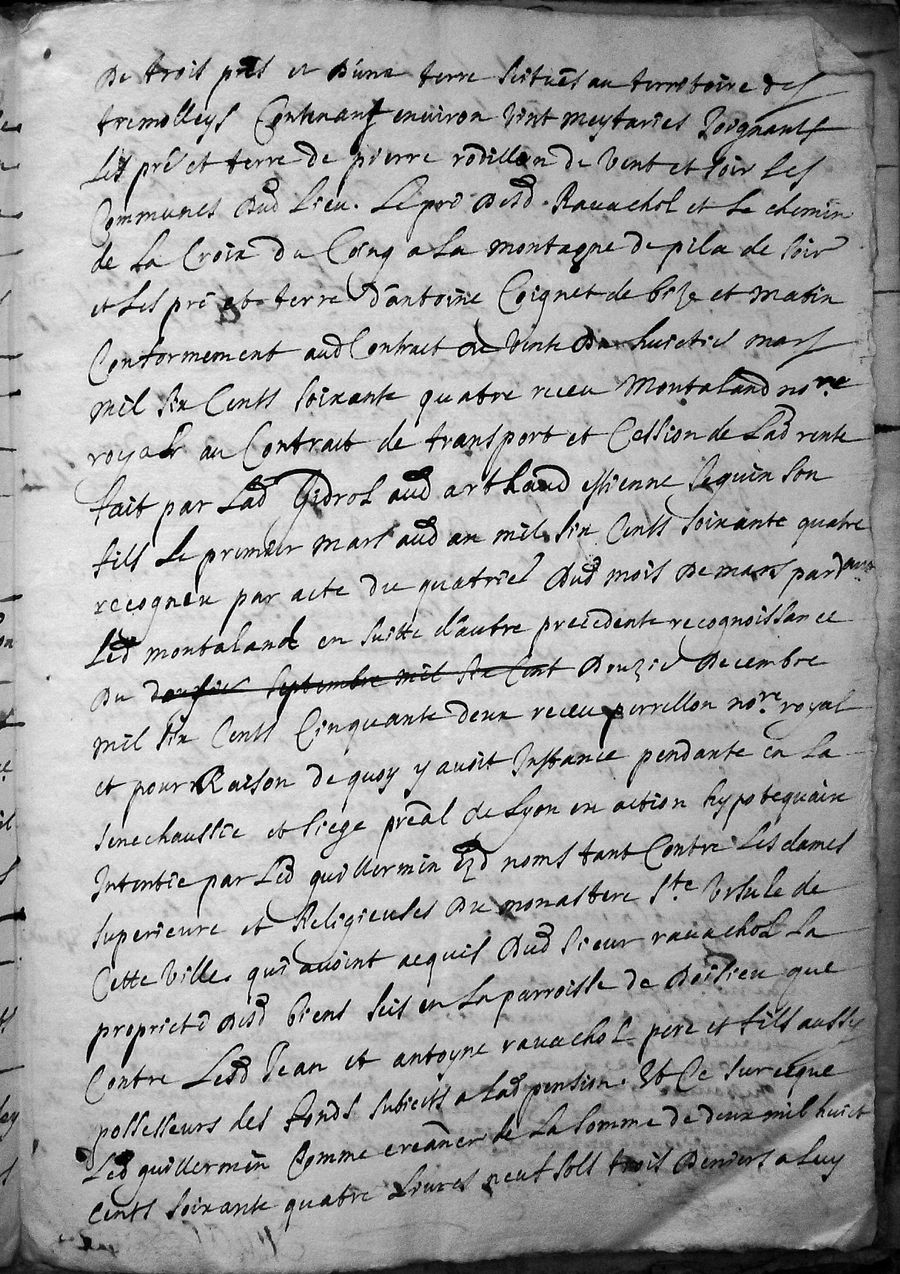 de trois prés et d'une terre scitués au territoire des
tremolleys Contenant environ vint meytaries Joignants
Les pré et terre de pierre rodillon de vent et soir Les
Communes dud Lieu. Le pré desd. Ravachol et Le chemin
de La Croix du Coing a La montagne de pila de soir
et Les pré et terre d'antoine Coignet de bize et matin
Conformement aud Contrait de vente du huictie mars
mil six Cents soixante quatre receu Montaland nore
royal au Contrait de transport et Cession de Lad rente
fait par Lad Gidrol aud arthaud estienne sequin son
fils Le premier mars aud an mil six Cents soixante quatre
recogneu par acte du quatrie dud mois de mars pard
Led montaland en suitte d'autre precedente recognoissance
du septembre mil six Cent douzie decembre
mil six Cents Cinquante deux receu perrillon nore royal
et pour Raison de quoy y avoit Instance pendante en La
senechaussée et siege préal de Lyon en action hypotequaire
Intentée par Led guillermin esd noms tant Contre Les dames
superieure et Religieuses du monastere Ste Ursule de
Cette Ville qui avoint acquis dud sieur ravachol La
proprieté desd biens scis en La parroisse de Doisieu que
Contre Lesd Jean et antoyne ravachol pere et fils aussy
possesseurs des fonds subiects a Lad pension. Et Ce sur ceque
Led guillermin Comme creancier de La somme de deux mil huict
Cents soixante quatre Livres neuf sols trois deniers a Luy